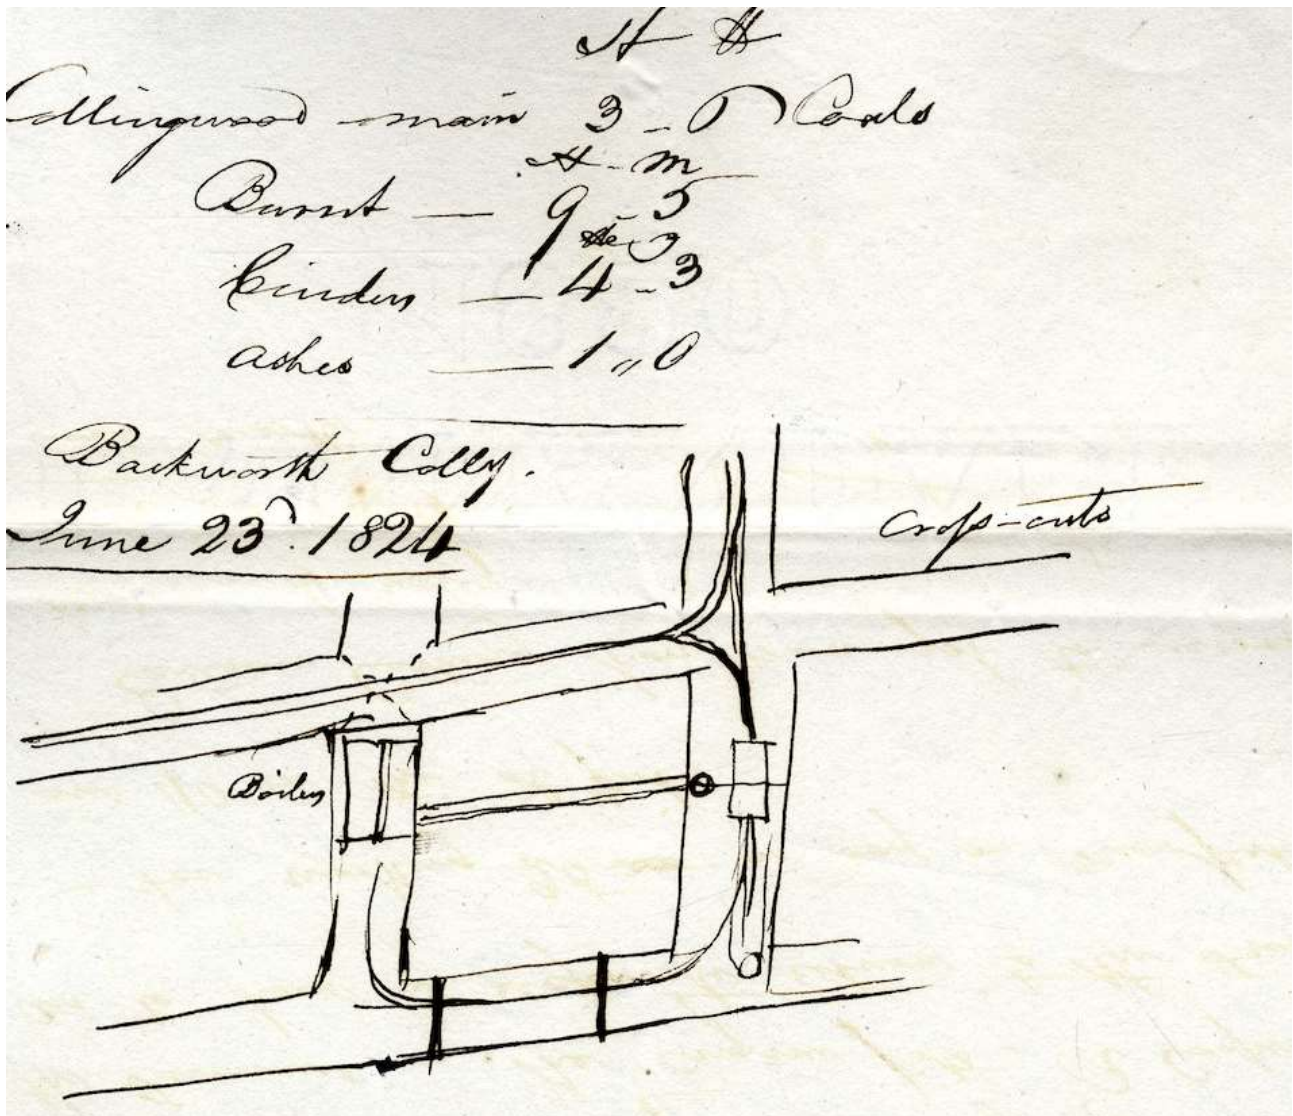 Collingwood main 3 - 0 Coals
H - m
Burnt — 9 - 5
Cinders — 4 - 3
ashes — 1 ,, 0
Backworth Colly.
June 23d. 1824
Crop-cuts
Boilers